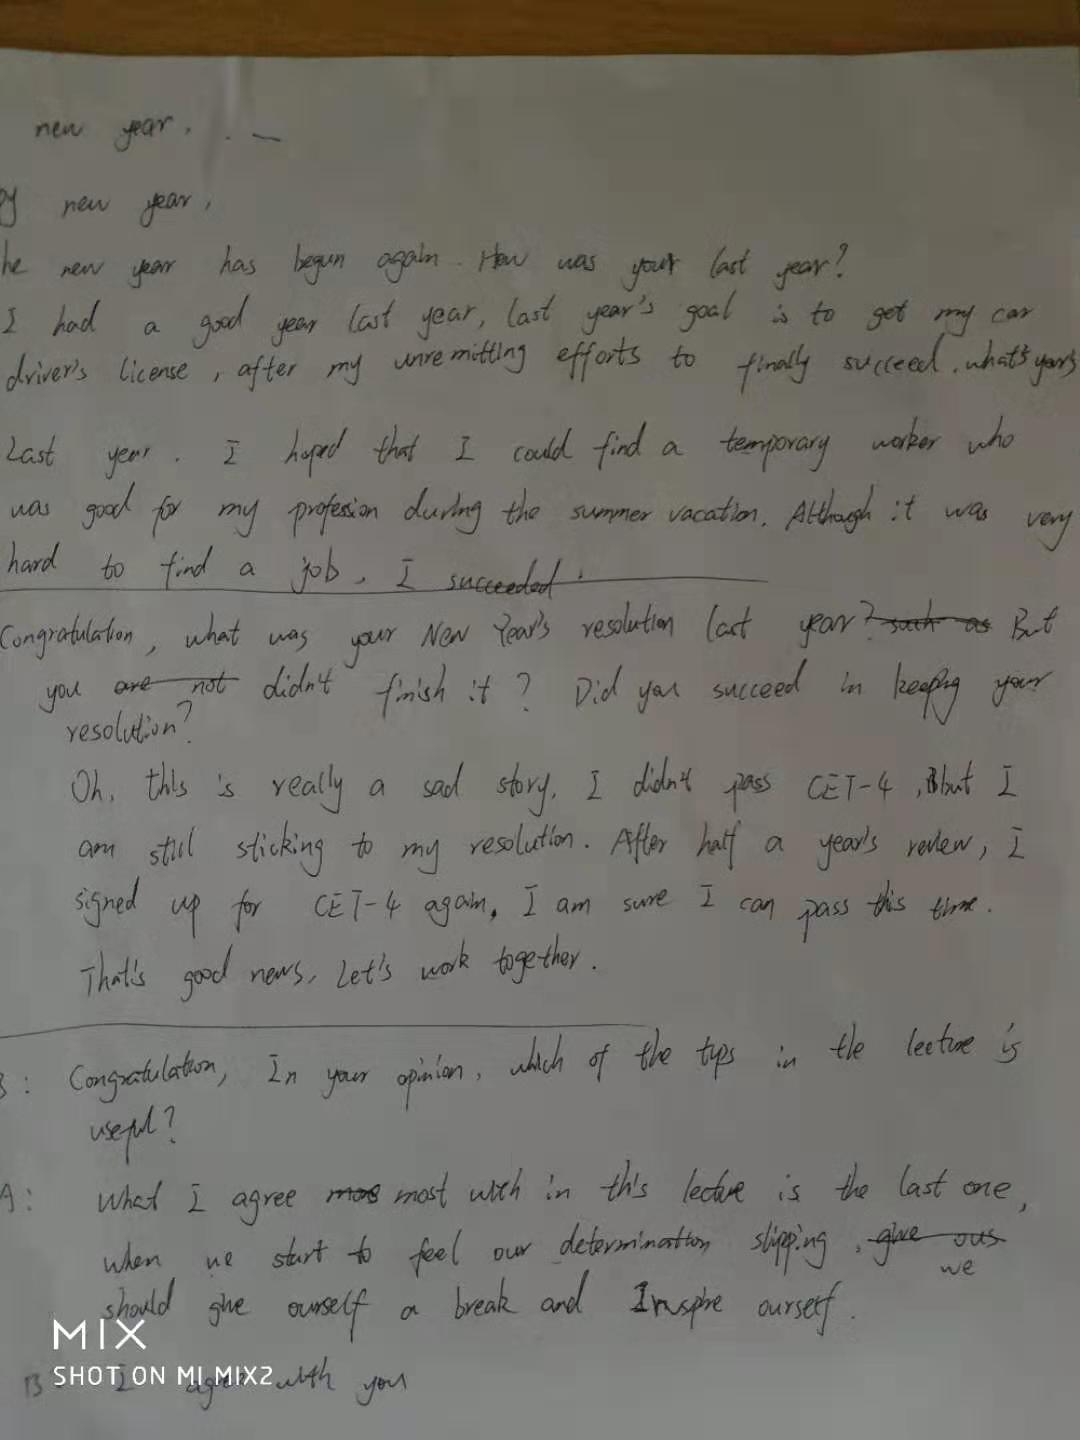 new year.
new year,
he new year has begun again. How was your last year?
I had a good year last year, last year's goal is to get my car
driver's license, after my unremitting efforts to finally succeed. what's yours
Last year. I hoped that I could find a temporary worker who
was good for my profession during the summer vacation. Although it was very
hard to find a job, I succeeded.
Congratulation, what was your New Year's resolution last year? such as But
you are not didn't finish it? Did you succeed in keeping your
resolution?
Oh, this is really a sad story, I didn't pass CET-4, but I
am still sticking to my resolution. After half a year's review, I
signed up for CET-4 again, I am sure I can pass this time.
That's good news, Let's work together.
B: Congratulation, In your opinion, which of the tips in the lecture is
useful?
A: What I agree most with in this lecture is the last one,
when we start to feel our determination slipping, give ous
we
should give ourself a break and Inspire ourself.
MIX
SHOT ON MI MIX2
B I agree with you